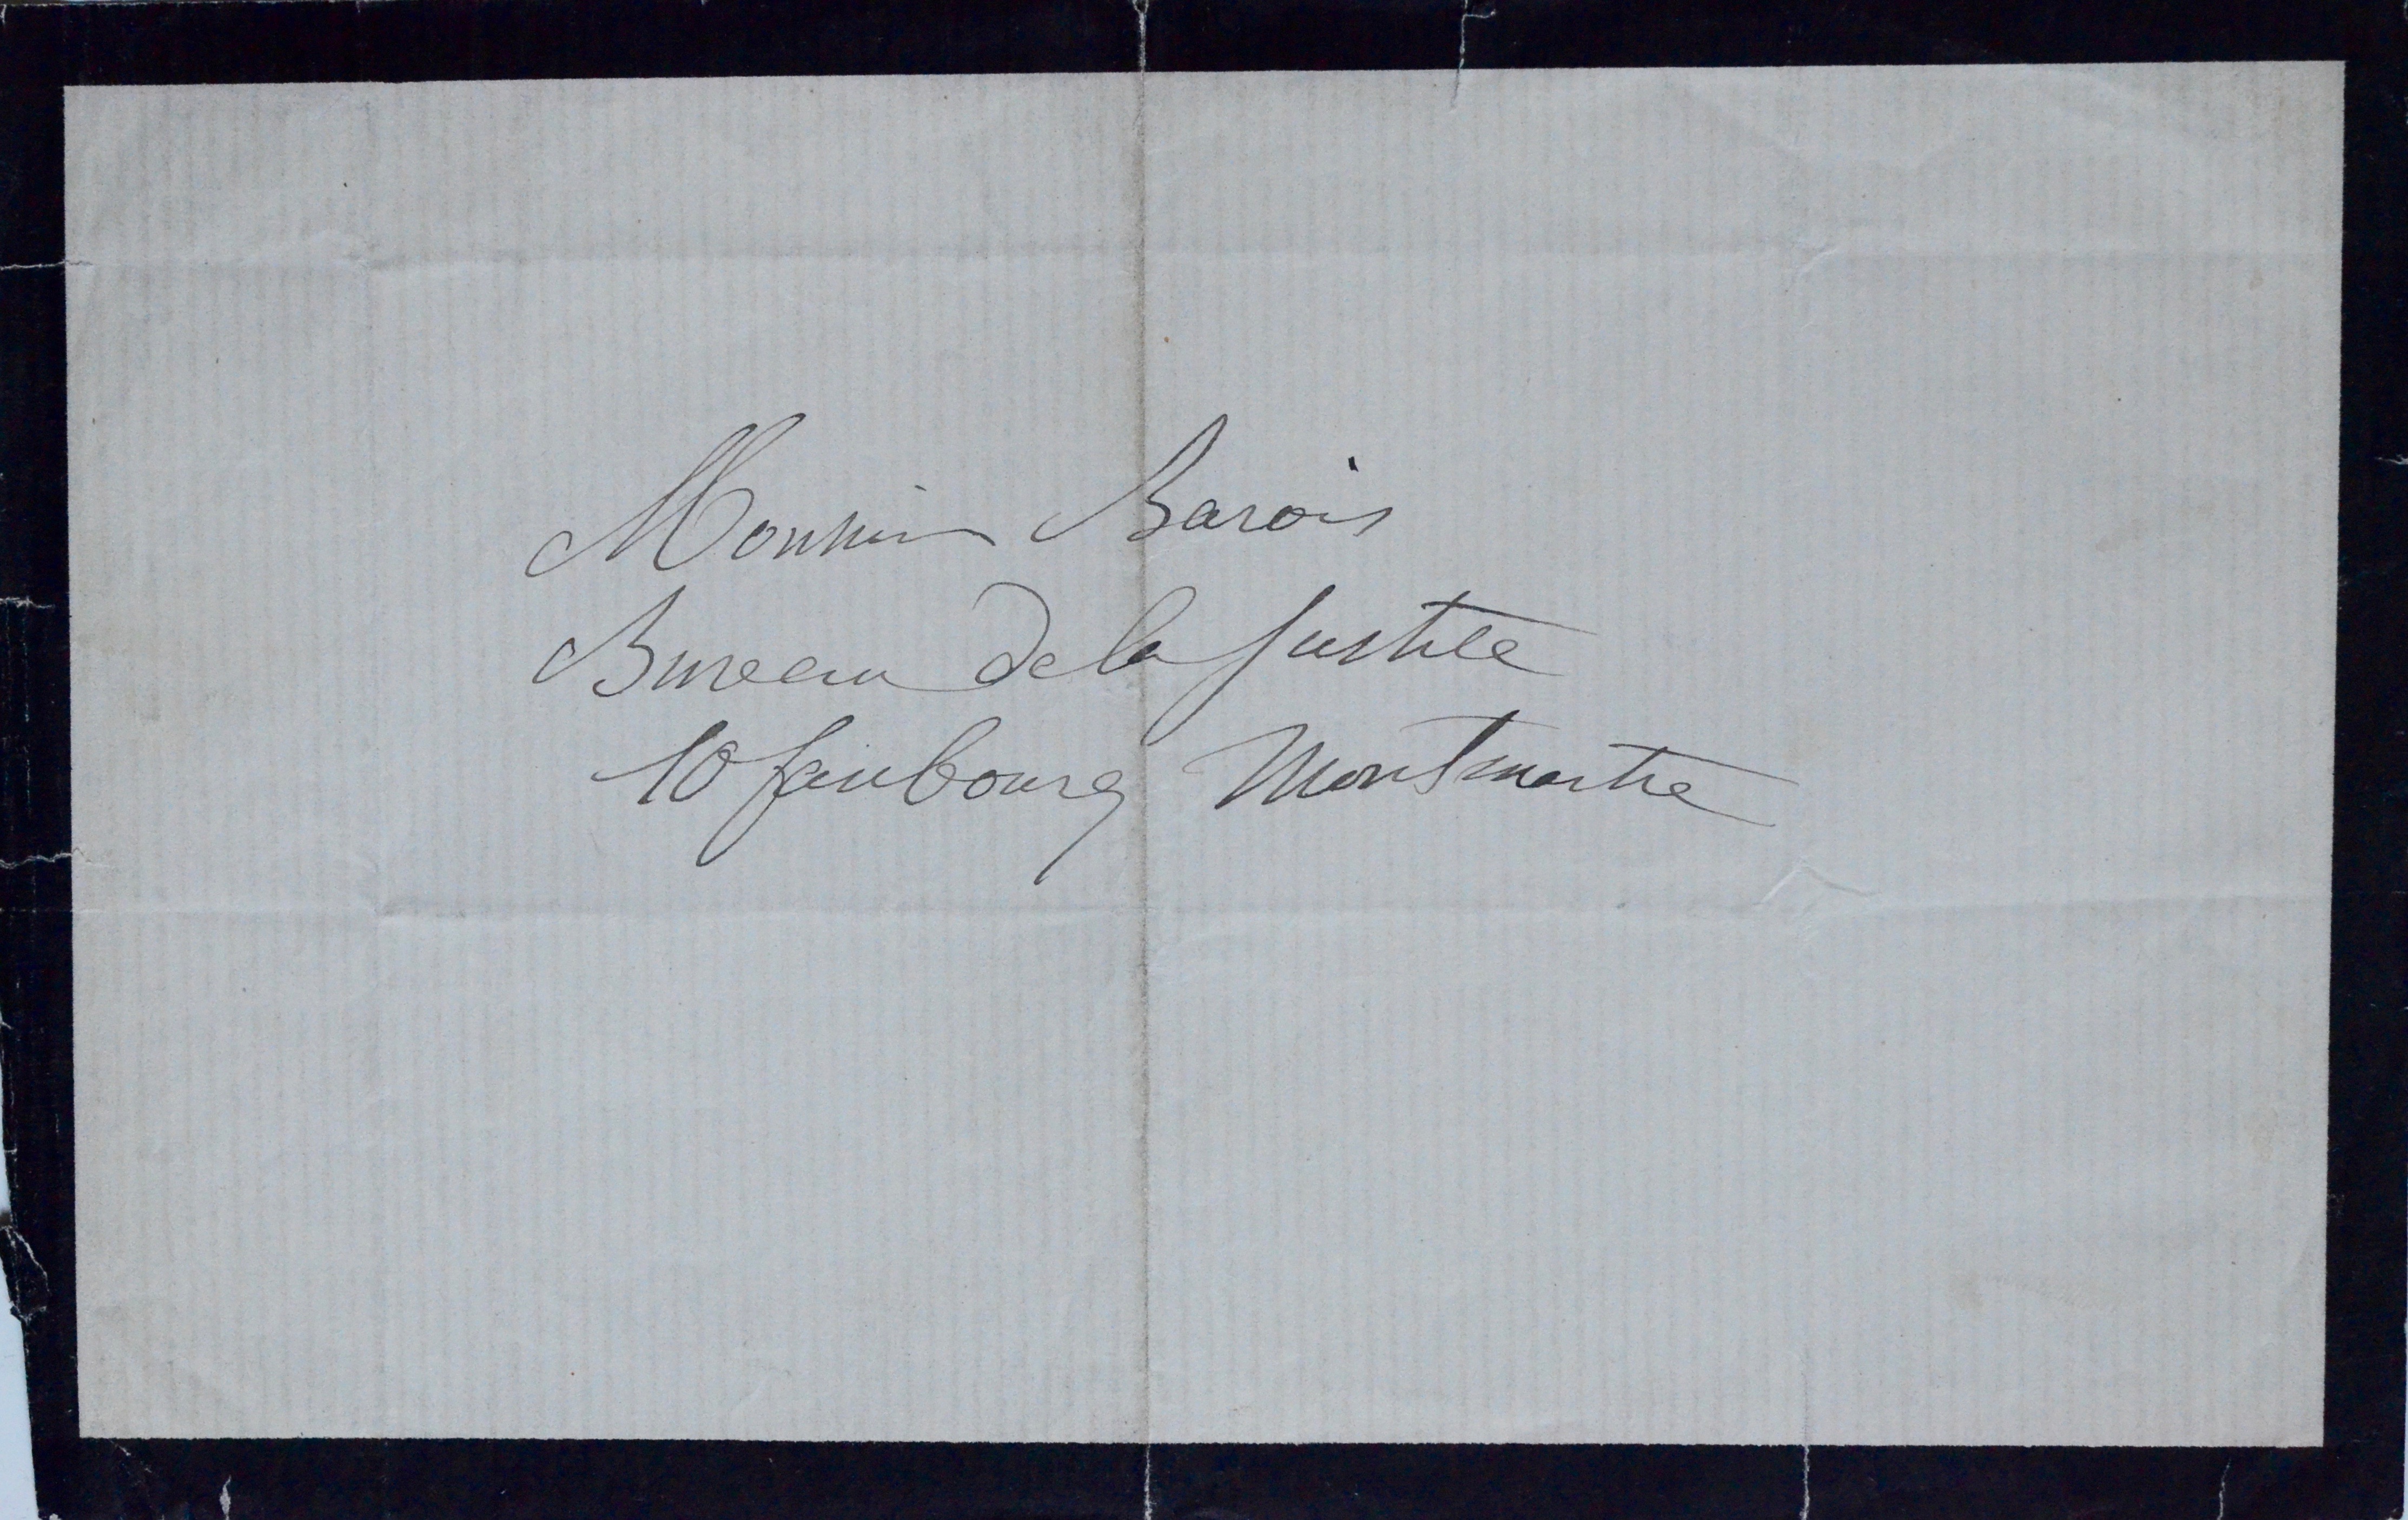 Monsieur Barois
Bureau de la Justice
10 faubourg Montmartre